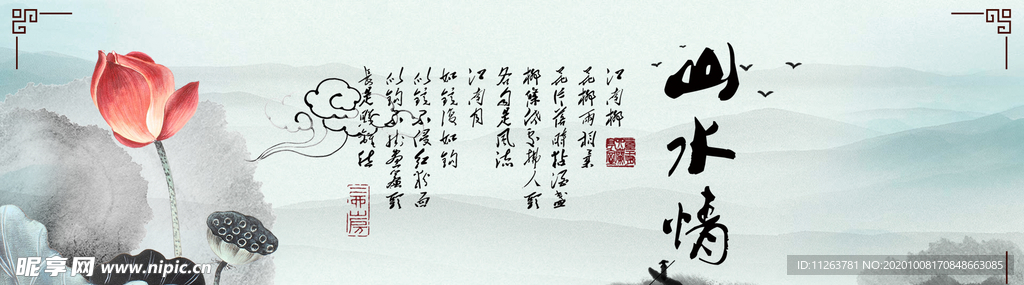 山水情
江南柳
花柳兩相柔
花片落時黏酒盞
柳條低處拂人頭
各自是風流
江南月
如鏡復如鉤
似鏡不侵紅粉面
似鉤不掛畫簾頭
長是照離愁
昵享网 www.nipic.cn
ID:11263781 NO:20201008170848663085